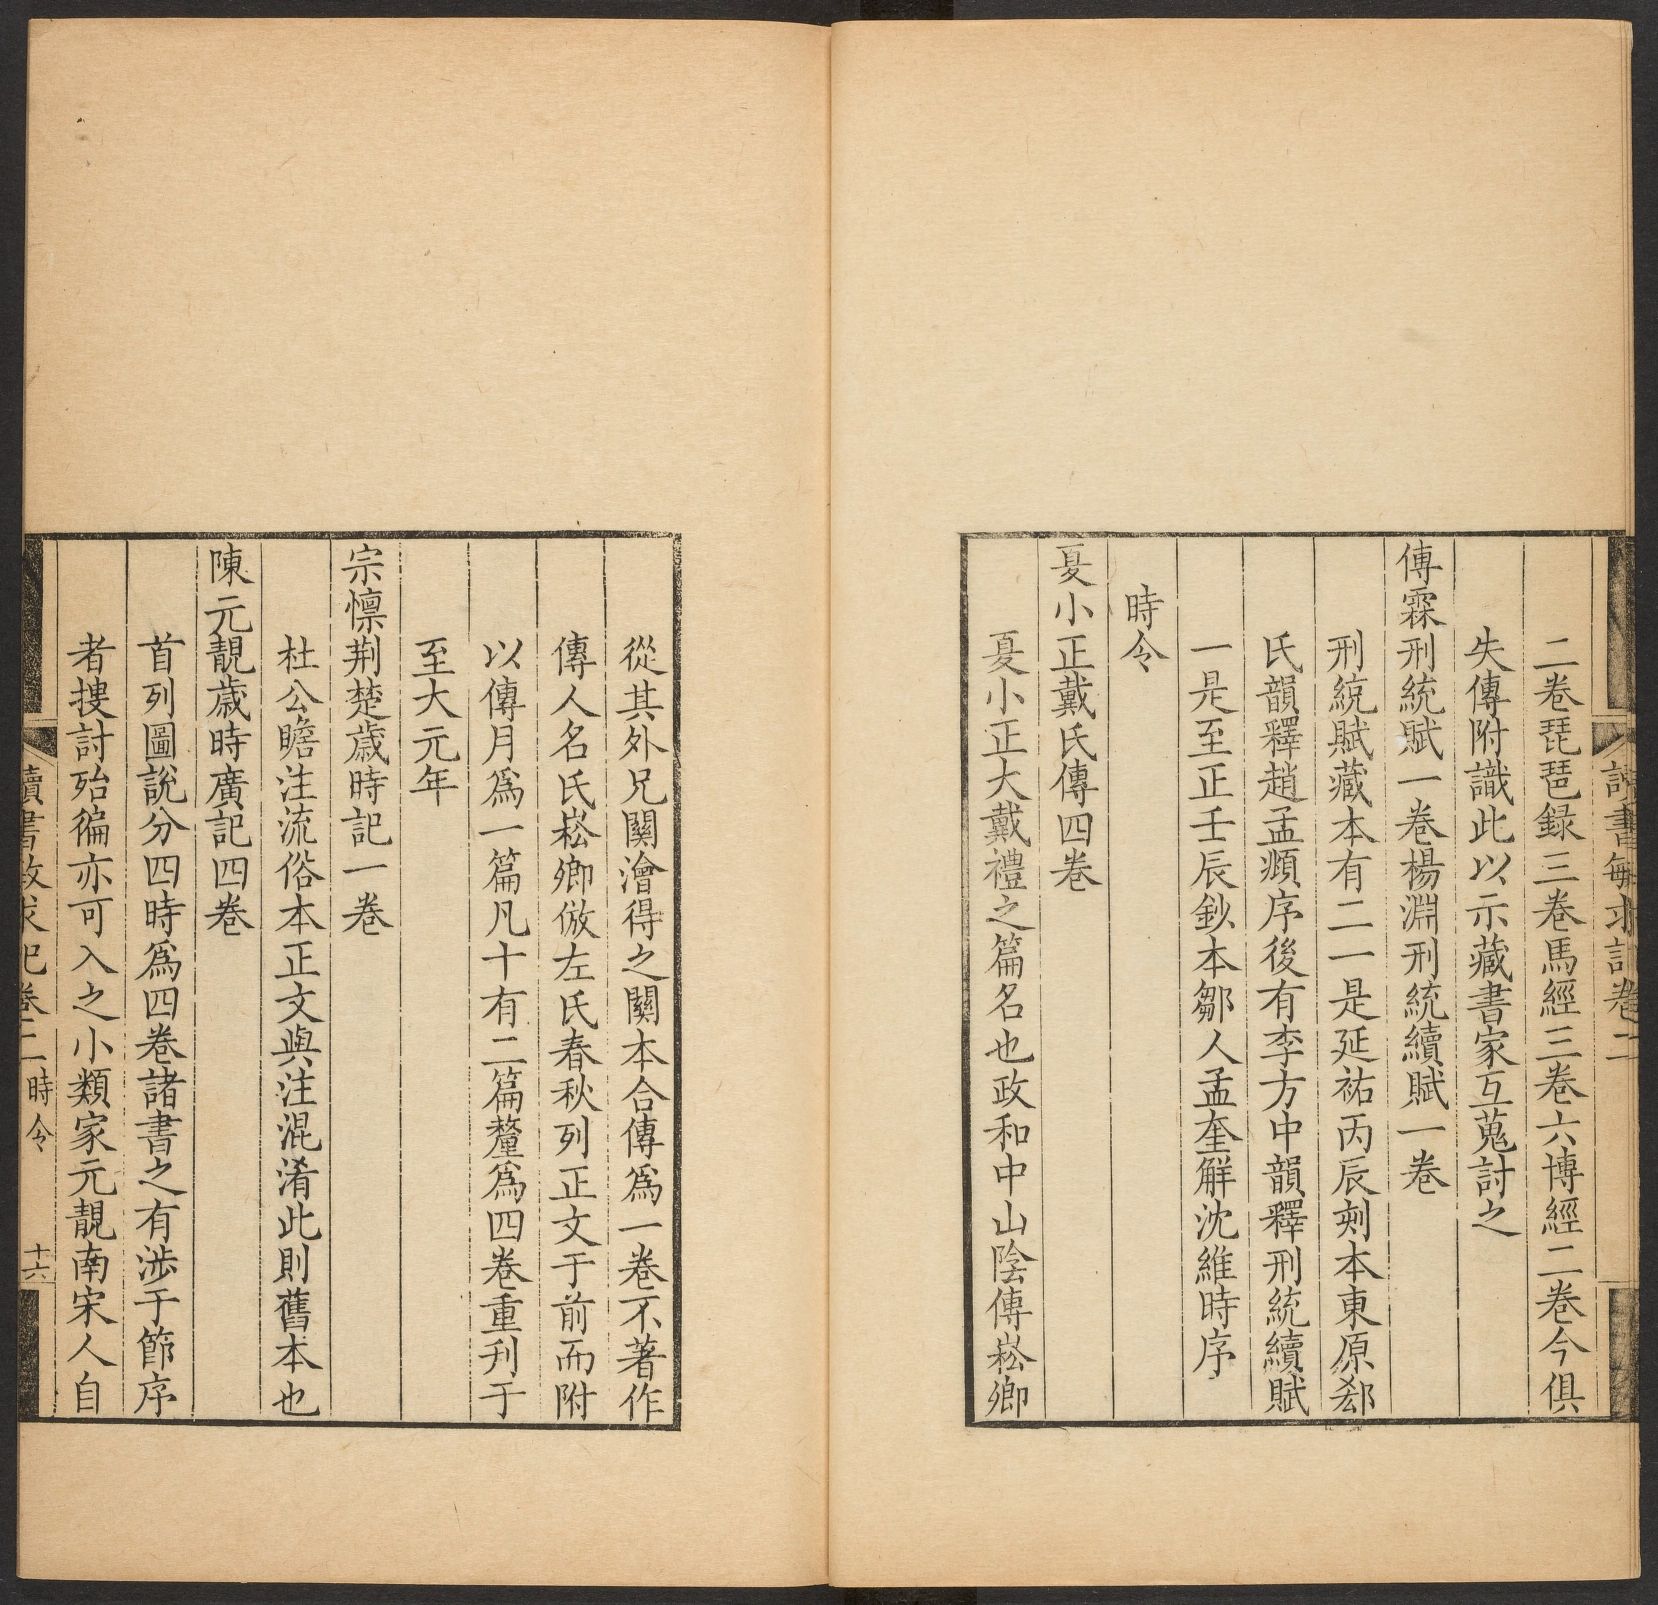 讀書敏求記卷二
二卷琵琶録三卷馬經三卷六博經二卷今俱
失傳附識此以示藏書家互蒐討之
傅霖刑統賦一卷楊淵刑統續賦一卷
刑統賦藏本有二一是延祐丙辰刻本東原郄
氏韻釋趙孟頫序後有李方中韻釋刑統續賦
一是至正壬辰鈔本鄒人孟奎解沈維時序
時令
夏小正戴氏傳四卷
夏小正大戴禮之篇名也政和中山陰傅崧卿
從其外兄關澮得之關本合傳爲一卷不著作
傳人名氏崧卿倣左氏春秋列正文于前而附
以傳月爲一篇凡十有二篇釐爲四卷重刊于
至大元年
宗懍荆楚歲時記一卷
杜公瞻注流俗本正文與注混淆此則舊本也
陳元靚歲時廣記四卷
首列圖説分四時爲四卷諸書之有涉于節序
者摟討殆徧亦可入之小類家元靚南宋人自
讀書敏求記卷二 時令 十六